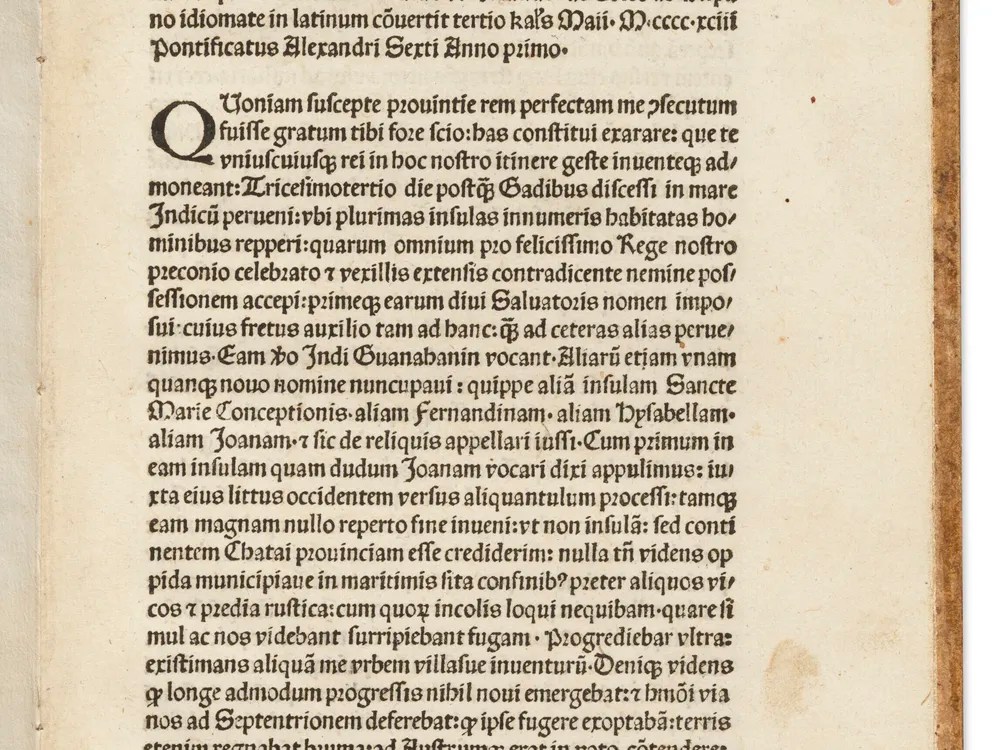 no idiomate in latinum cōuertit tertio kal's Maii· M·cccc·xciii
Pontificatus Alexandri Sexti Anno primo·
QUoniam suscepte prouintie rem perfectam me ↄsecutum
fuisse gratum tibi fore scio: has constitui exarare: que te
vniuscuiusqꝫ rei in hoc nostro itinere geste inuenteqꝫ ad⸗
moneant: Tricesimotertio die postqꝫ̄ Gadibus discessi in mare
Indicū perueni: vbi plurimas insulas innumeris habitatas ho⸗
minibus repperi: quarum omnium pro felicissimo Rege nostro
preconio celebrato ⁊ vexillis extensis contradicente nemine pos⸗
sessionem accepi: primeqꝫ earum diui Saluatoris nomen impo⸗
sui· cuius fretus auxilio tam ad hanc: qꝫ̄ ad ceteras alias perue⸗
nimus· Eam ꝟo Indi Guanahanin vocant· Aliarū etiam vnam
quanqꝫ nouo nomine nuncupaui: quippe aliā insulam Sancte
Marie Conceptionis· aliam Fernandinam· aliam Hysabellam·
aliam Joanam· ⁊ sic de reliquis appellari iussi· Cum primum in
eam insulam quam dudum Joanam vocari dixi appulimus: iu⸗
xta eius littus occidentem versus aliquantulum processi: tamqꝫ
eam magnam nullo reperto fine inueni: vt non insulā: sed conti
nentem Chatai prouinciam esse crediderim: nulla tn̄ videns op
pida municipiaue in maritimis sita confinibꝰ preter aliquos vi⸗
cos ⁊ predia rustica: cum quoꝝ incolis loqui nequibam· quare si
mul ac nos videbant surripiebant fugam· Progrediebar vltra:
existimans aliquā me vrbem villasue inuenturū· Deniqꝫ videns
ꝙ longe admodum progressis nihil noui emergebat: ⁊ hmōi via
nos ad Septentrionem deferebat: ꝙ ipse fugere exoptabā: terris
etenim regnabat bruma: ad Austrumqꝫ erat in voto cōtendere: